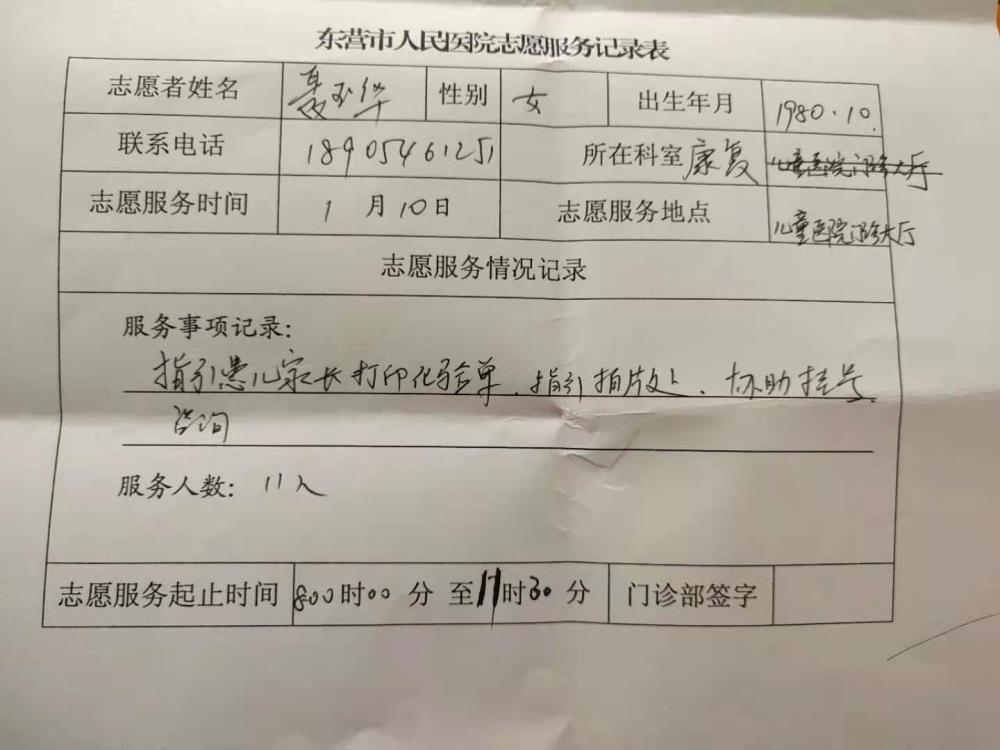 东营市人民医院志愿服务记录表
志愿者姓名 聂玉华 性别 女 出生年月 1980.10.
联系电话 18905461251 所在科室 康复 儿童医院门诊大厅
志愿服务时间 1 月 10 日 志愿服务地点 儿童医院门诊大厅
志愿服务情况记录
服务事项记录:
指引患儿家长打印化验单、指引拍片处、协助挂号、
咨询
服务人数: 11人
志愿服务起止时间 800时00分 至 11时30分 门诊部签字